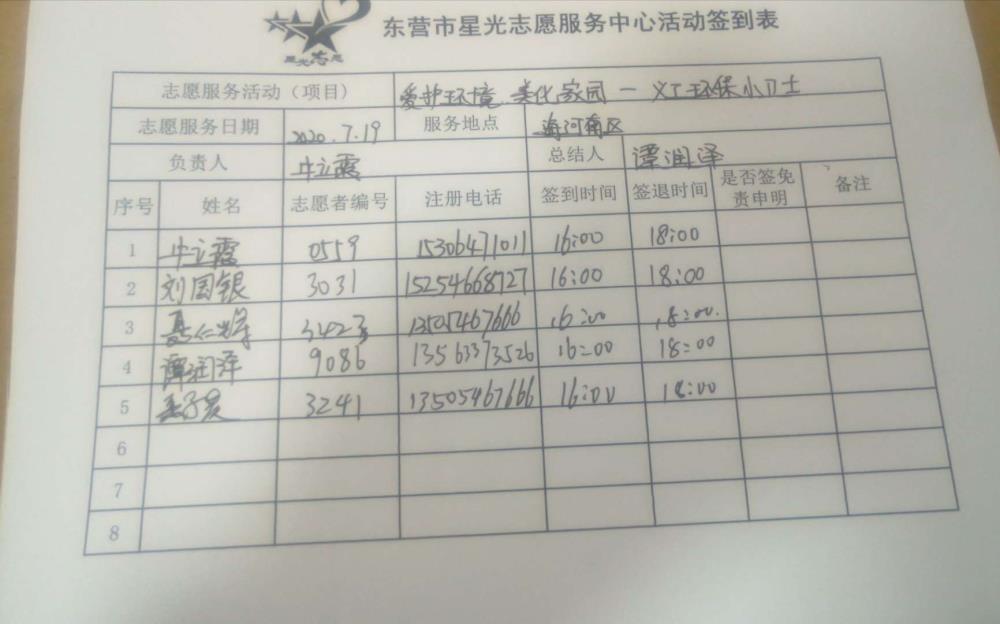 星光志愿
东营市星光志愿服务中心活动签到表
志愿服务活动（项目） 爱护环境 美化家园 — 义工环保小卫士
志愿服务日期 2020.7.19 服务地点 海河南区
负责人 牛立霞 总结人 谭润泽
序号 姓名 志愿者编号 注册电话 签到时间 签退时间 是否签免责申明 备注
1 牛立霞 0559 15306471011 16:00 18:00
2 刘国银 3031 15254668727 16:00 18:00
3 3423 13505467666 16:00 18:00.
4 谭润泽 9086 13563373526 16:00 18:00
5 3241 13505467666 16:00 18:00
6
7
8